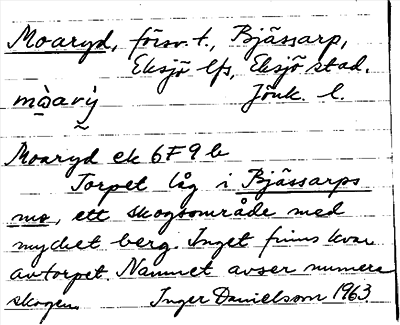 Moaryd, försv. t., Bjässarp,
Eksjö lfs, Eksjö stad.
mȯ̱avẏ Jönk. l.
Moaryd ek 6F9b
Torpet låg i Bjässarps
mo, ett skogsområde med
mycket berg. Inget finns kvar
av torpet. Namnet avser numera
skogen. Inger Danielsson 1963